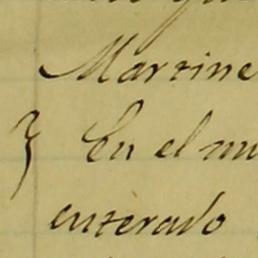 Martine
En el mu
enterado